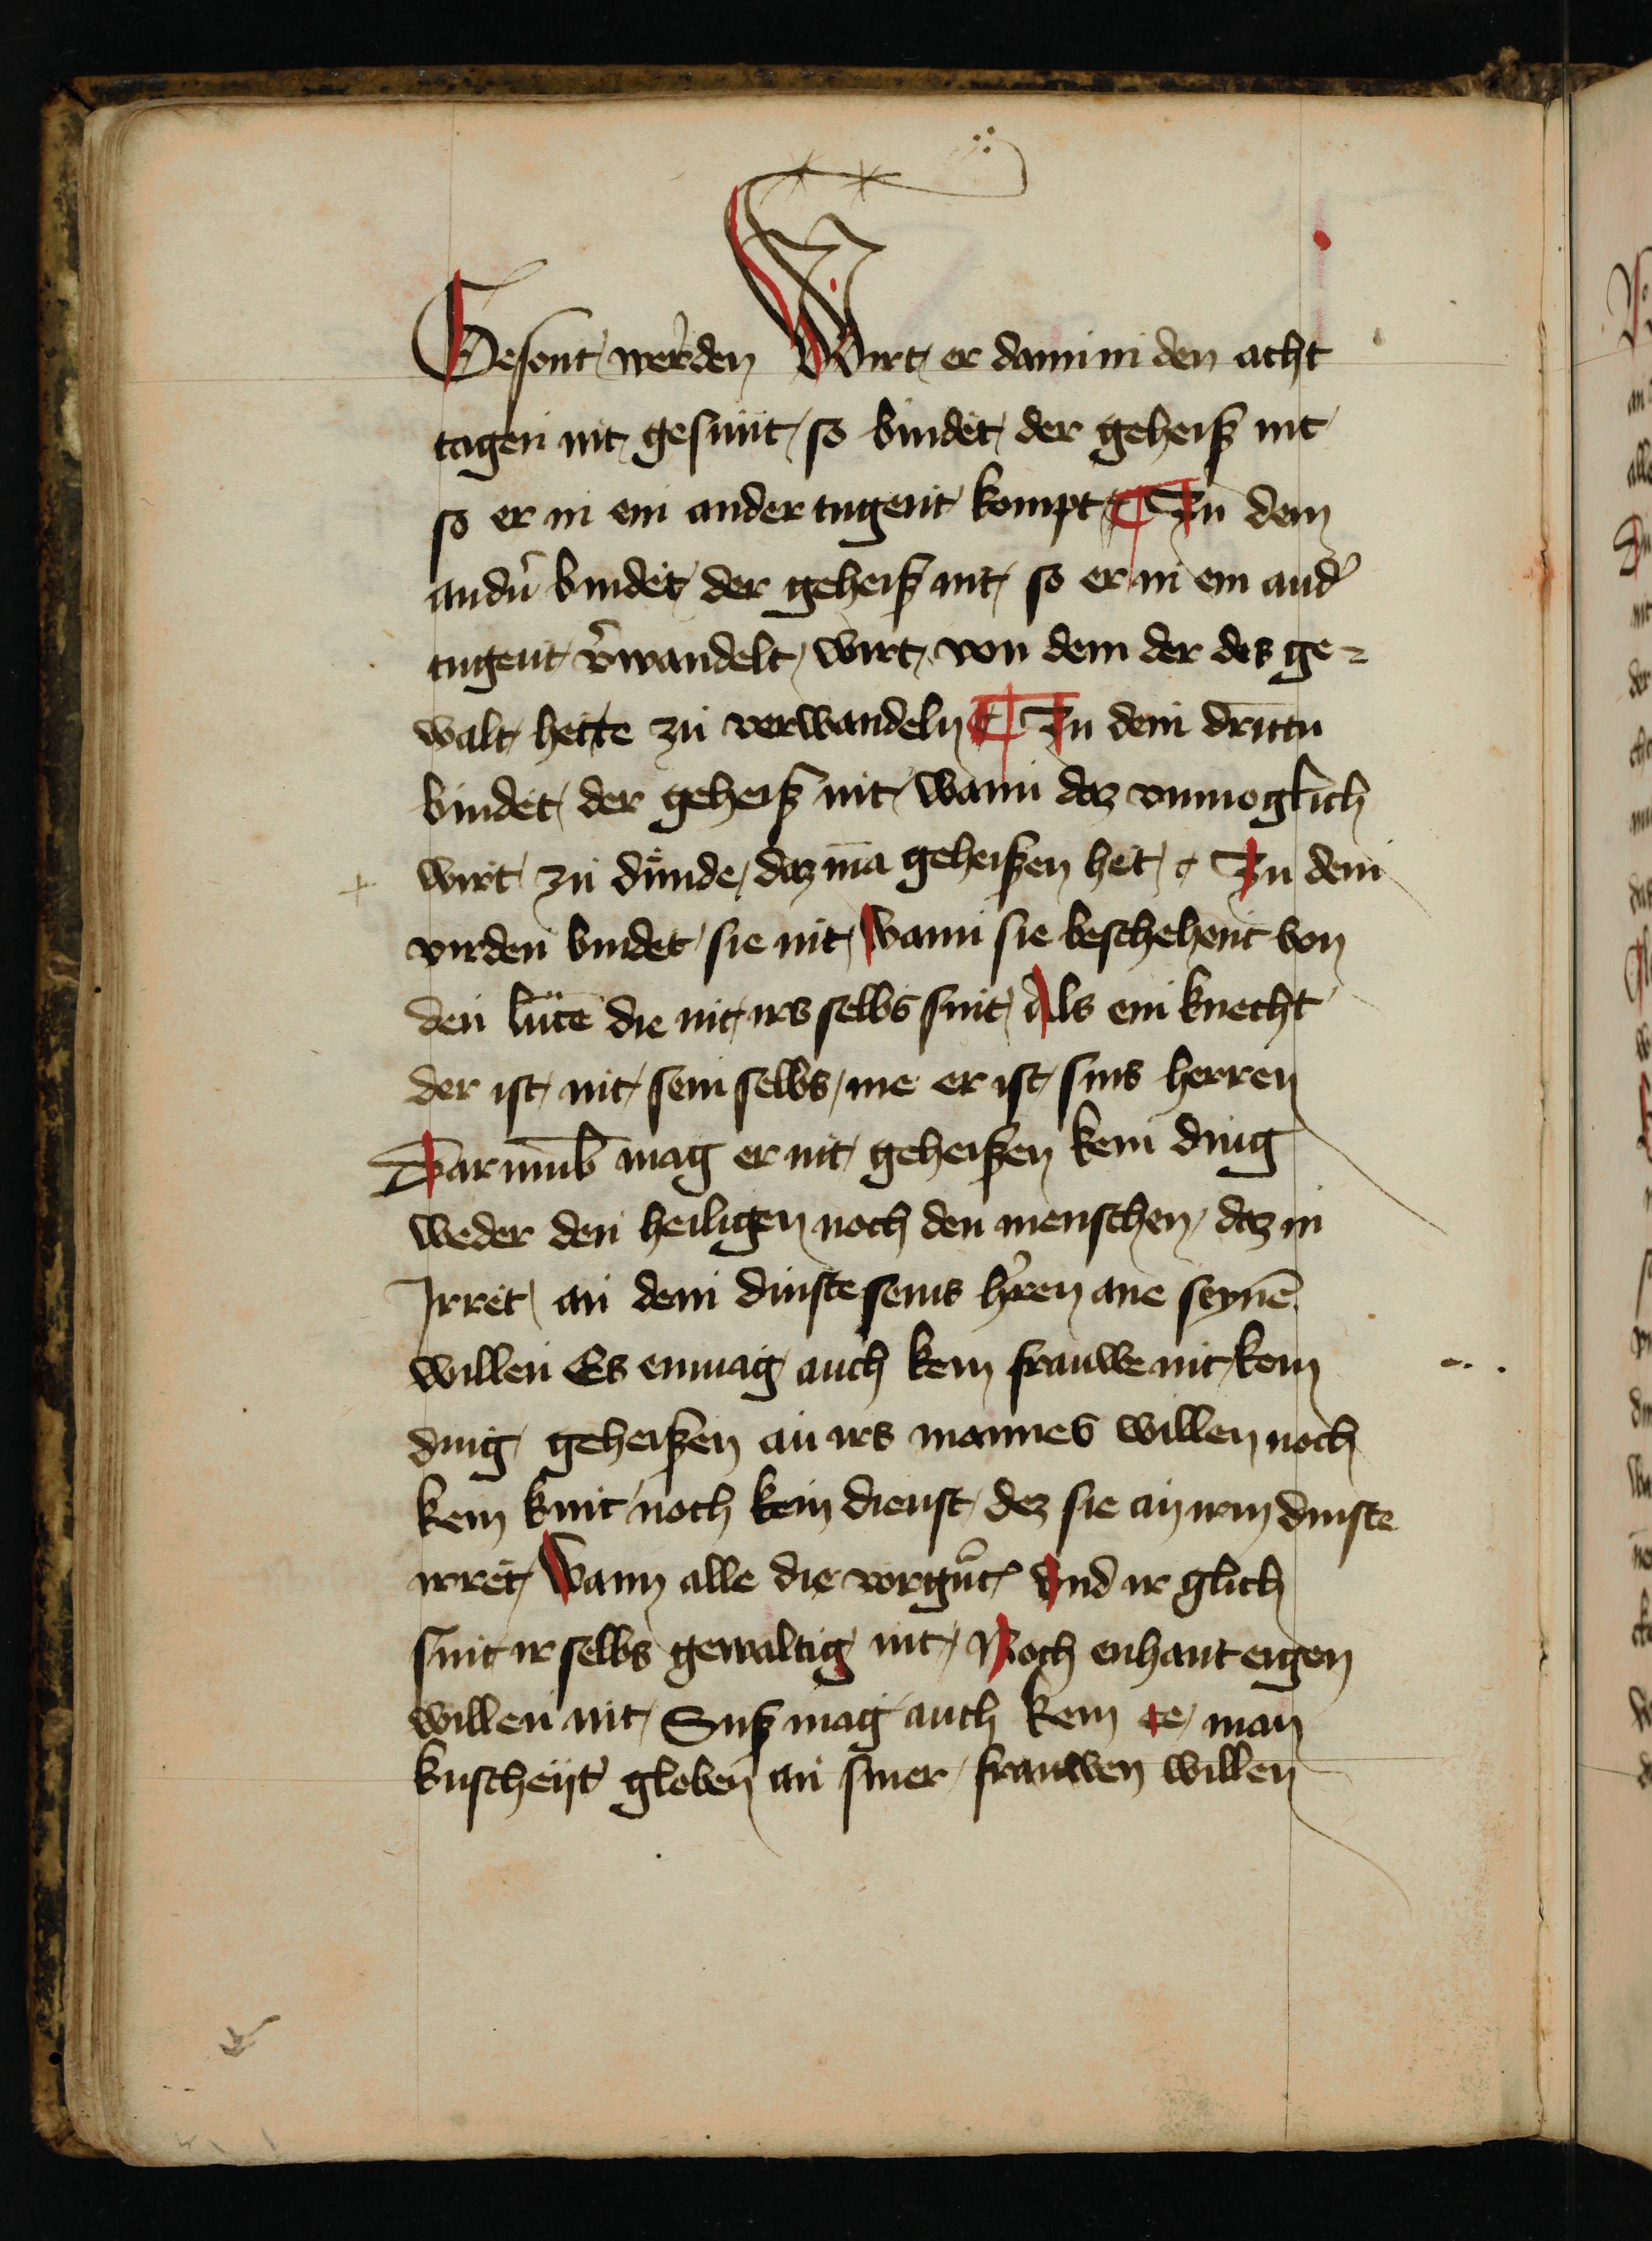 Gesont werden Wirt er dann in den acht
tagen nit gesunt so bindet der geheiß nit
so er in ein ander tugent kompt ¶ In dem
andn̄ bindet der geheiß nit so er in ein and̕
tugent v̕wandelt wirt von dem der des ge=
walt hette zu verwandeln ¶ In dem drittn
bindet der geheiß nit wann daz vnmoglich
wirt zu dünde daz mā geheißen het Jn dem
virden bindet sie nit Wann sie beschehent von
den lütē die nit irs selbs sint Als ein knecht
der ist nit sein selbs me er ist sins herren
Dar vmb mag er nit geheißen kein ding
weder den heiligen noch den menschen daz in
Jrret an dem dinste seins h̕ren ane seynē
willen Es enmag auch kein frauwe nit kein
ding geheißen an irs mannes willen noch
kein kint noch kein dienst dez sie an irm dinste
irret Wann alle die vorgn̄t Vnd ir glich
sint ir selbs gewaltig nit Noch enhant eigen
willen nit Suß mag auch kein ee man
kuscheijt globen an siner frauwen willen